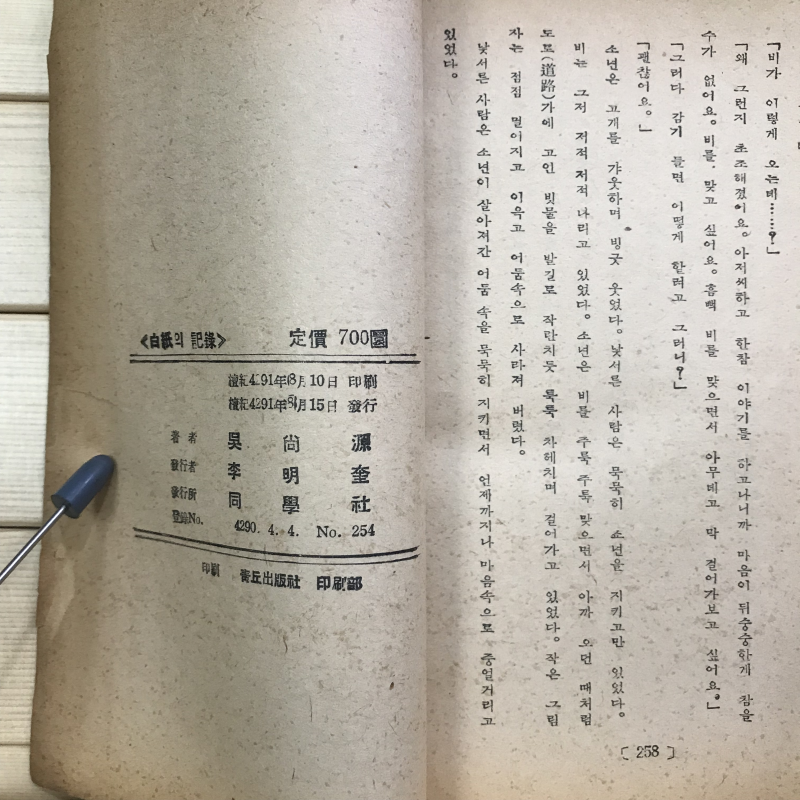 「비가 이렇게 오는데……?」
「왜 그런지 초조해졌어요. 아저씨하고 한참 이야기를 하고나니까 마음이 뒤숭숭한게 잠을
수가 없어요. 비를 맞고 싶어요. 흠빽 비를 맞으면서 아무데고 막 걸어가보고 싶어요.」
「그러다 감기 들면 어떻게 할려고 그러니?」
「괜찮어요.」
소년은 고개를 갸웃하며 빙긋 웃었다. 낯서른 사람은 묵묵히 소년을 지키고만 있었다.
비는 그저 저적저적 나리고 있었다. 소년은 비를 주룩주룩 맞으면서 아까 오던 때처럼
도로(道路)가에 고인 빗물을 발길로 작란치듯 툭툭 차헤치며 걸어가고 있었다. 작은 그림
자는 점점 멀어지고 이윽고 어둠속으로 사라져 버렸다.
낯서른 사람은 소년이 살아져간 어둠 속을 묵묵히 지키면서 언제까지나 마음속으로 중얼거리고
있었다.
〔 258 〕
《白紙의 記錄》 定價 700圜
檀紀4291年8月10日 印刷
檀紀4291年8月15日 發行
著者 吳尙源
發行者 李明奎
發行所 同學社
登錄No. 4290. 4. 4. No. 254
印刷 靑丘出版社 印刷部